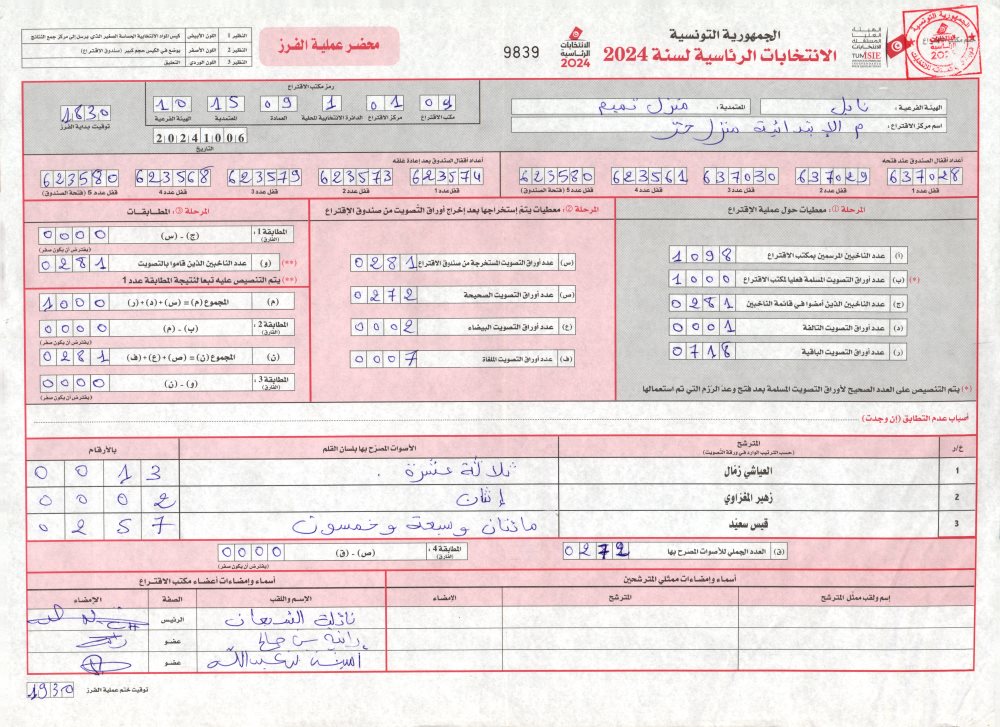 الجمهورية التونسية
الانتخابات الرئاسية لسنة 2024
الهيئة العليا المستقلة للانتخابات
TUNISIE
الانتخابات الرئاسية 2024
9839
محضر عملية الفرز
النظير 1 اللون الأبيض كيس المواد الانتخابية الحساسة الصغير الذي يرسل إلى مركز جمع النتائج
النظير 2 اللون الأصفر يوضع في الكيس حجم كبير (صندوق الاقتراع)
النظير 3 اللون الوردي التعليق
الهيئة الفرعية : نابل المعتمدية : منزل تميم
اسم مركز الاقتراع : م الإبتدائية منزل حر
رمز مكتب الاقتراع
04 01 1 09 15 10
مكتب الاقتراع مركز الاقتراع الدائرة الانتخابية المحلية العمادة المعتمدية الهيئة الفرعية
20241006
التاريخ
1830
توقيت بداية الفرز
أعداد أقفال الصندوق عند فتحه
637028 637029 637030 623561 623580
قفل عدد 1 قفل عدد 2 قفل عدد 3 قفل عدد 4 قفل عدد 5 (فتحة الصندوق)
أعداد أقفال الصندوق بعد إعادة غلقه
623574 623573 623579 623568 623580
قفل عدد 1 قفل عدد 2 قفل عدد 3 قفل عدد 4 قفل عدد 5 (فتحة الصندوق)
المرحلة ①: معطيات حول عملية الاقتراع
(أ) عدد الناخبين المرسمين بمكتب الاقتراع 1098
(*) (ب) عدد أوراق التصويت المسلمة فعليا لمكتب الاقتراع 1000
(ج) عدد الناخبين الذين أمضوا في قائمة الناخبين 0281
(د) عدد أوراق التصويت التالفة 0001
(ر) عدد أوراق التصويت الباقية 0718
(*) يتم التنصيص على العدد الصحيح لأوراق التصويت المسلمة بعد فتح وعد الرزم التي تم استعمالها
المرحلة ②: معطيات يتم إستخراجها بعد إخراج أوراق التصويت من صندوق الاقتراع
(س) عدد أوراق التصويت المستخرجة من صندوق الاقتراع 0281
(ص) عدد أوراق التصويت الصحيحة 0272
(ع) عدد أوراق التصويت البيضاء 0002
(ف) عدد أوراق التصويت الملغاة 0007
المرحلة ③: المطابقات
المطابقة 1 : (الفارق) (ج) - (س) 0000
(يفترض أن يكون صفر)
(**) (و) عدد الناخبين الذين قاموا بالتصويت 0281
(**) يتم التنصيص عليه تبعا لنتيجة المطابقة عدد 1
(م) المجموع (م) = (س) + (د) + (ر) 1000
المطابقة 2 : (الفارق) (ب) - (م) 0000
(يفترض أن يكون صفر)
(ن) المجموع (ن) = (ص) + (ع) + (ف) 0281
المطابقة 3 : (الفارق) (و) - (ن) 0000
(يفترض أن يكون صفر)
أسباب عدم التطابق (إن وجدت)
ع/ر المترشح (حسب الترتيب الوارد في ورقة التصويت) الأصوات المصرّح بها بلسان القلم بالأرقام
1 العياشي زمّال ثلاثة عشرة 0013
2 زهير المغزاوي إثنان 0002
3 قيس سعيّد مائتان وسبعة وخمسون 0257
(ق) العدد الجملي للأصوات المصرح بها 0272
المطابقة 4 : (الفارق) (ص) - (ق) 0000
(يفترض أن يكون صفر)
أسماء وإمضاءات ممثلي المترشحين
إسم ولقب ممثل المترشح المترشح الامضاء
أسماء وإمضاءات أعضاء مكتب الاقتراع
الإسم واللقب الصفة الإمضاء
نائلة الشبعان الرئيس
رانية بن صالح عضو
أمينة بن عبدالله عضو
توقيت ختم عملية الفرز 1930